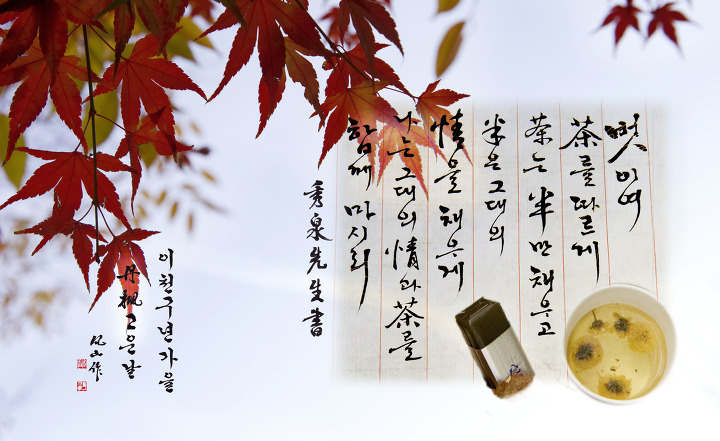 벗이여
茶를 따르게
茶는 半만 채우고
半은 그대의
情을 채우게
나는 그대의 情과 茶를
함께 마시리
秀泉先生書
이천구년 가을
丹楓 고은날
凡山作